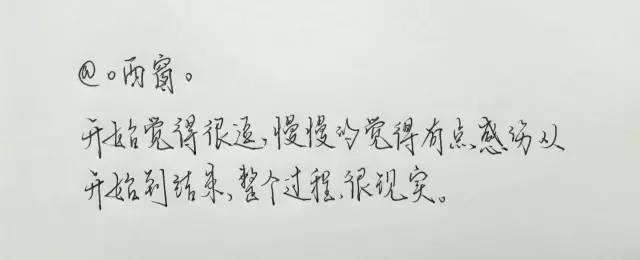 @。西窗。
开始觉得很逗,慢慢的觉得有点感伤从
开始到结果,整个过程,很现实。